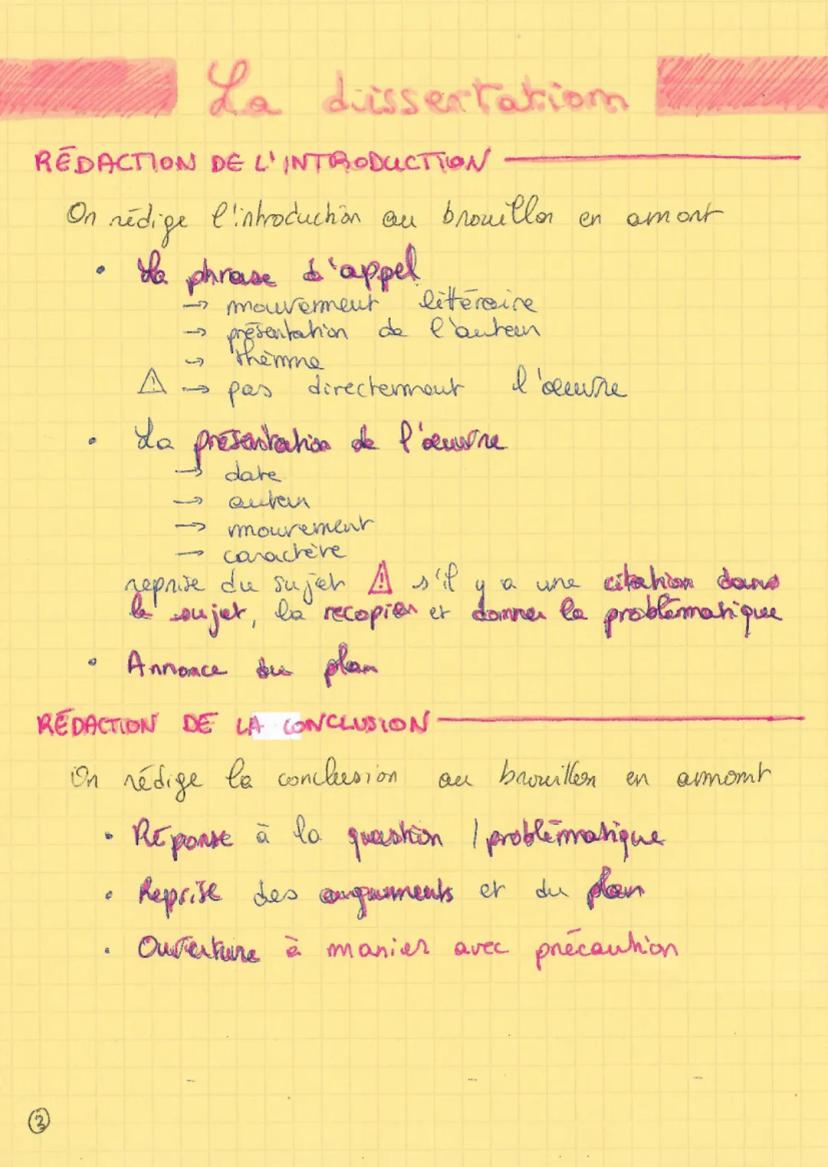 La dissertation
RÉDACTION DE L'INTRODUCTION
On rédige l'introduction au brouillon en amont
• La phrase d'appel
→ mouvement littéraire
→ présentation de l'auteur
→ thème
⚠ → pas directement l'œuvre
• La présentation de l'œuvre
→ date
→ auteur
→ mouvement
→ caractère
reprise du sujet ⚠ s'il y a une citation dans
le sujet, la recopier et donner la problématique
• Annonce du plan
RÉDACTION DE LA CONCLUSION
On rédige la conclusion au brouillon en amont
• Réponse à la question / problématique
• Reprise des arguments et du plan
• Ouverture à manier avec précaution
2